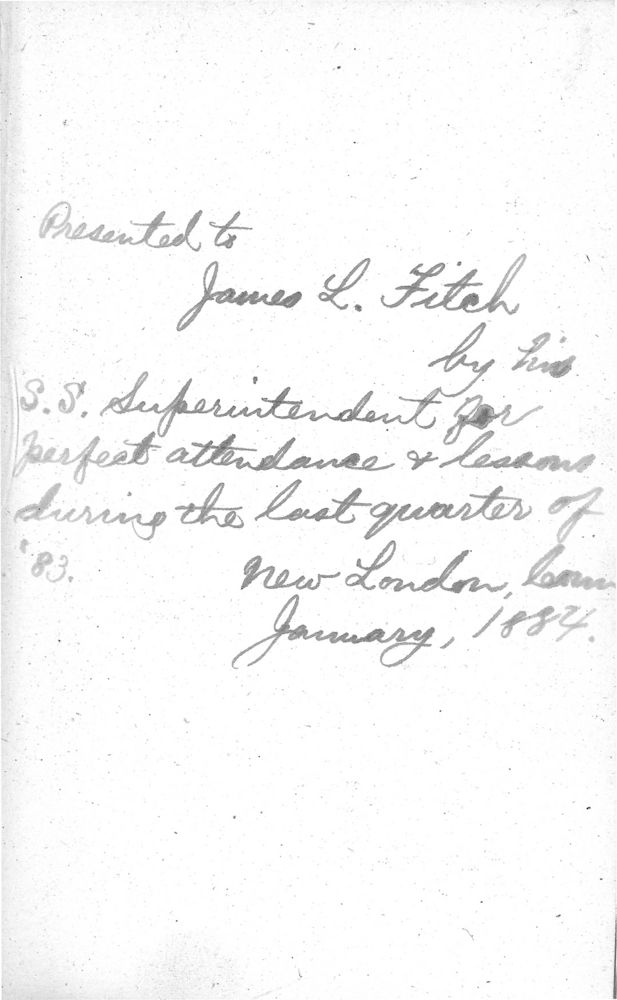 Presented to
James L. Fitch
by his
S.S. Superintendent for
perfect attendance & lessons
during the last quarter of
'83.
New London, Conn
January, 1884.